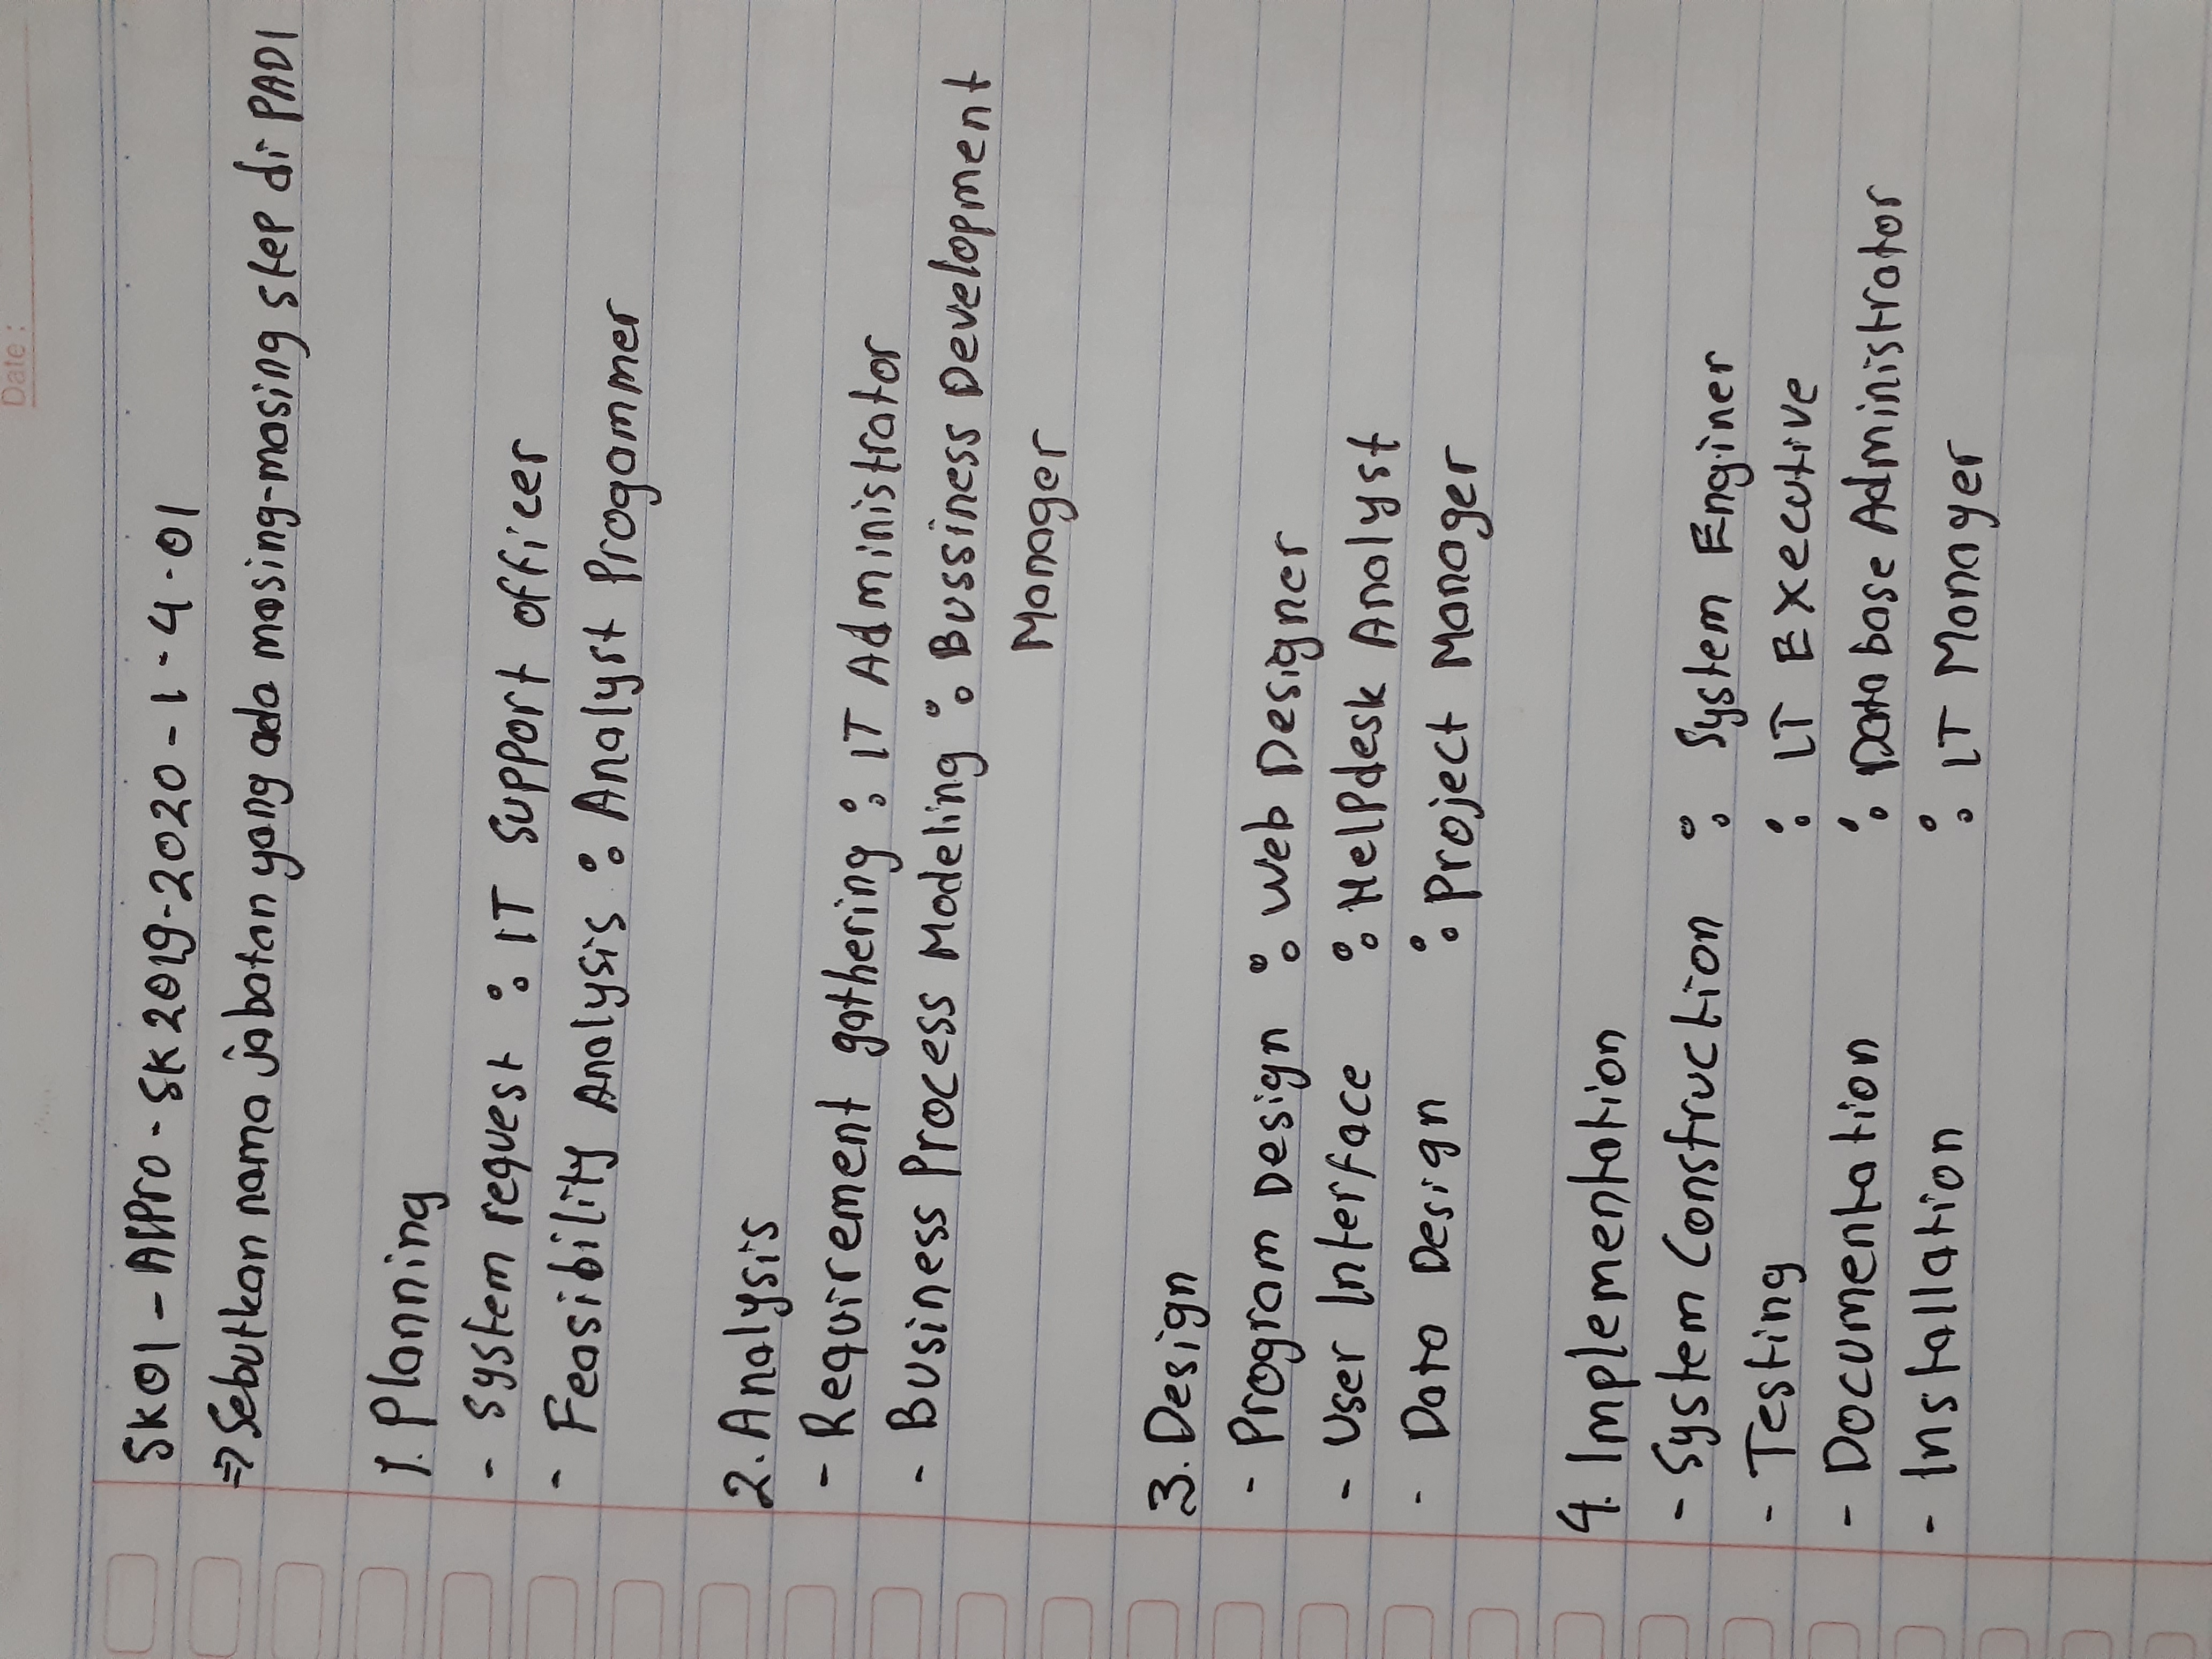 Date:
SK01 - APPro - SK2019-2020 - 1 - 4 - 01
⇒ Sebutkan nama jabatan yang ada masing-masing step di PADI
1. Planning
- System request : IT Support officer
- Feasibility Analysis : Analyst Progammer
2. Analysis
- Requirement gathering : IT Administrator
- Business Process Modeling : Bussiness Development
Manager
3. Design
- Program Design : Web Designer
- User Interface : Helpdesk Analyst
- Data Design : Project Manager
4. Implementation
- System Construction : System Enginer
- Testing : IT Executive
- Documentation : Database Administrator
- Installation : IT Manager